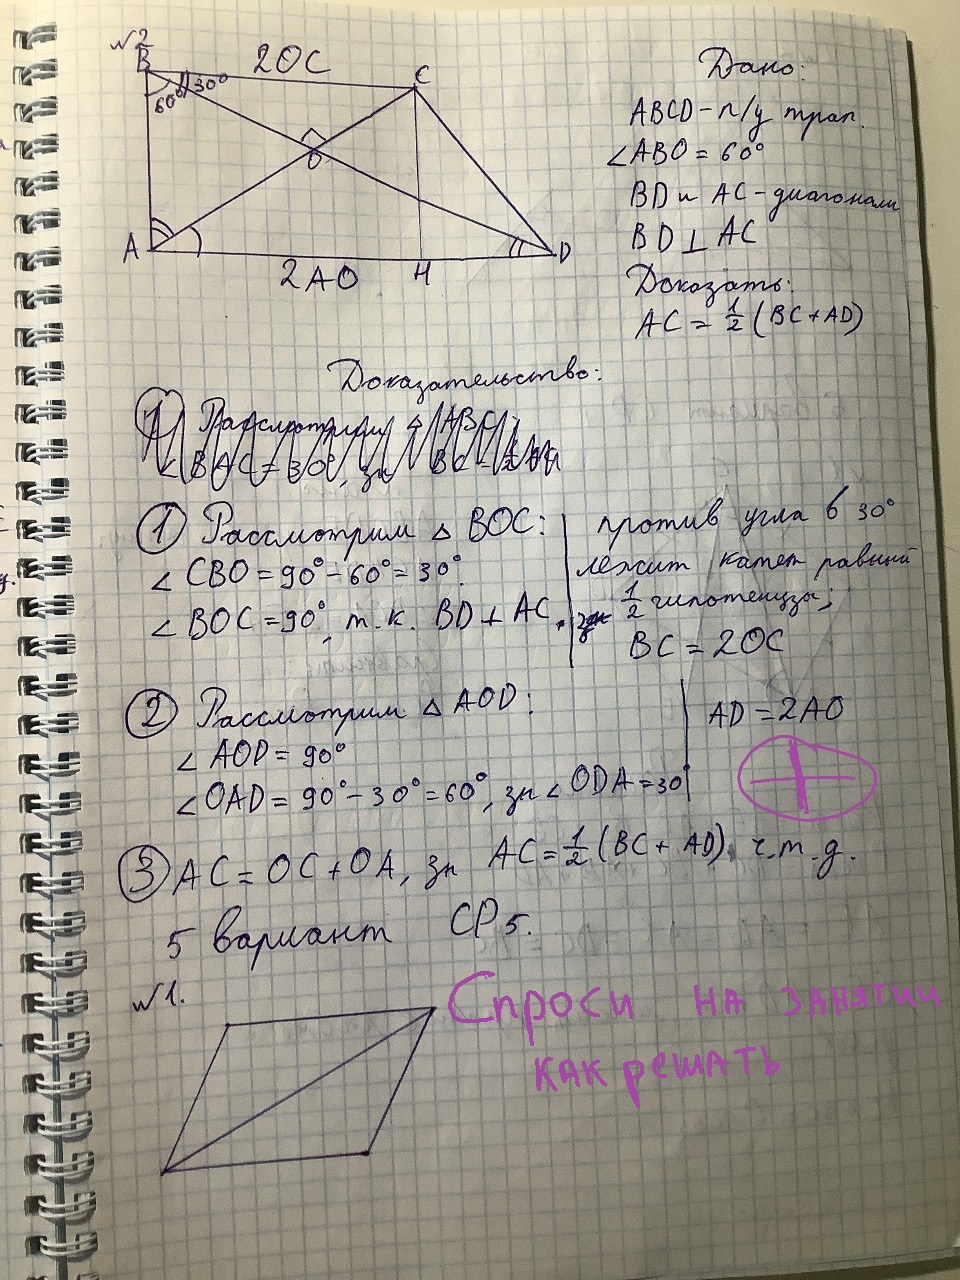 №2
B
2OC
C
60° 30°
O
A
2AO
H
D
Дано:
ABCD - п/у трап.
∠ABO = 60°
BD и AC - диагонали
BD ⊥ AC
Доказать:
AC = 1/2 (BC + AD)
Доказательство:
① Рассмотрим △ BOC:
∠ CBO = 90° - 60° = 30°.
∠ BOC = 90°, т.к. BD ⊥ AC.
против угла в 30°
лежит катет равный
1/2 гипотенузы;
BC = 2OC
② Рассмотрим △ AOD:
∠ AOD = 90°
∠ OAD = 90° - 30° = 60°, зн ∠ ODA = 30°
AD = 2AO
③ AC = OC + OA, зн AC = 1/2 (BC + AD). ч.т.д.
5 вариант СР 5.
№1.
Спроси на занятии
как решать